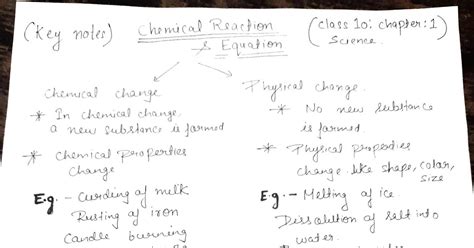 (Key notes)
Chemical Reaction
& Equation
(Class 10: chapter:1)
Science.
Chemical change
* In chemical change,
a new substance is formed
* Chemical Properties
Change
E.g. - Curding of milk
Rusting of iron
Candle burning
Physical change.
* No new substance
is formed
* Physical properties
change like shape, color,
size
E.g. - Melting of ice.
Dissolution of salt into
water.